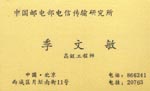 中国邮电部电信传输研究所
季文敏
高级工程师
中国·北京
西城区月坛南街11号
电话：866241
电挂：20765